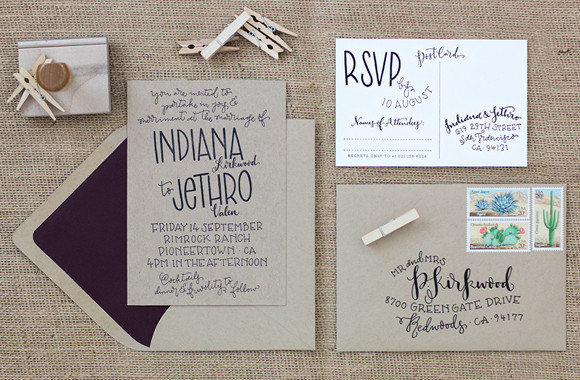 you are invited to
partake in joy &
merriment at the marriage of
INDIANA
Kirkwood
to
JETHRO
Valen
FRIDAY 14 SEPTEMBER
RIMROCK RANCH
PIONEERTOWN · CA
4PM IN THE AFTERNOON
Cocktails,
dinner & frivolity to follow.
Postcard
RSVP
by
10 AUGUST
Names of Attendees:
REGRETS ONLY TO
Indiana & Jethro
619 29TH STREET
San Francisco
CA · 94131
MR and MRS
P. Kirkwood
8700 GREEN GATE DRIVE
Redwoods · CA · 94177